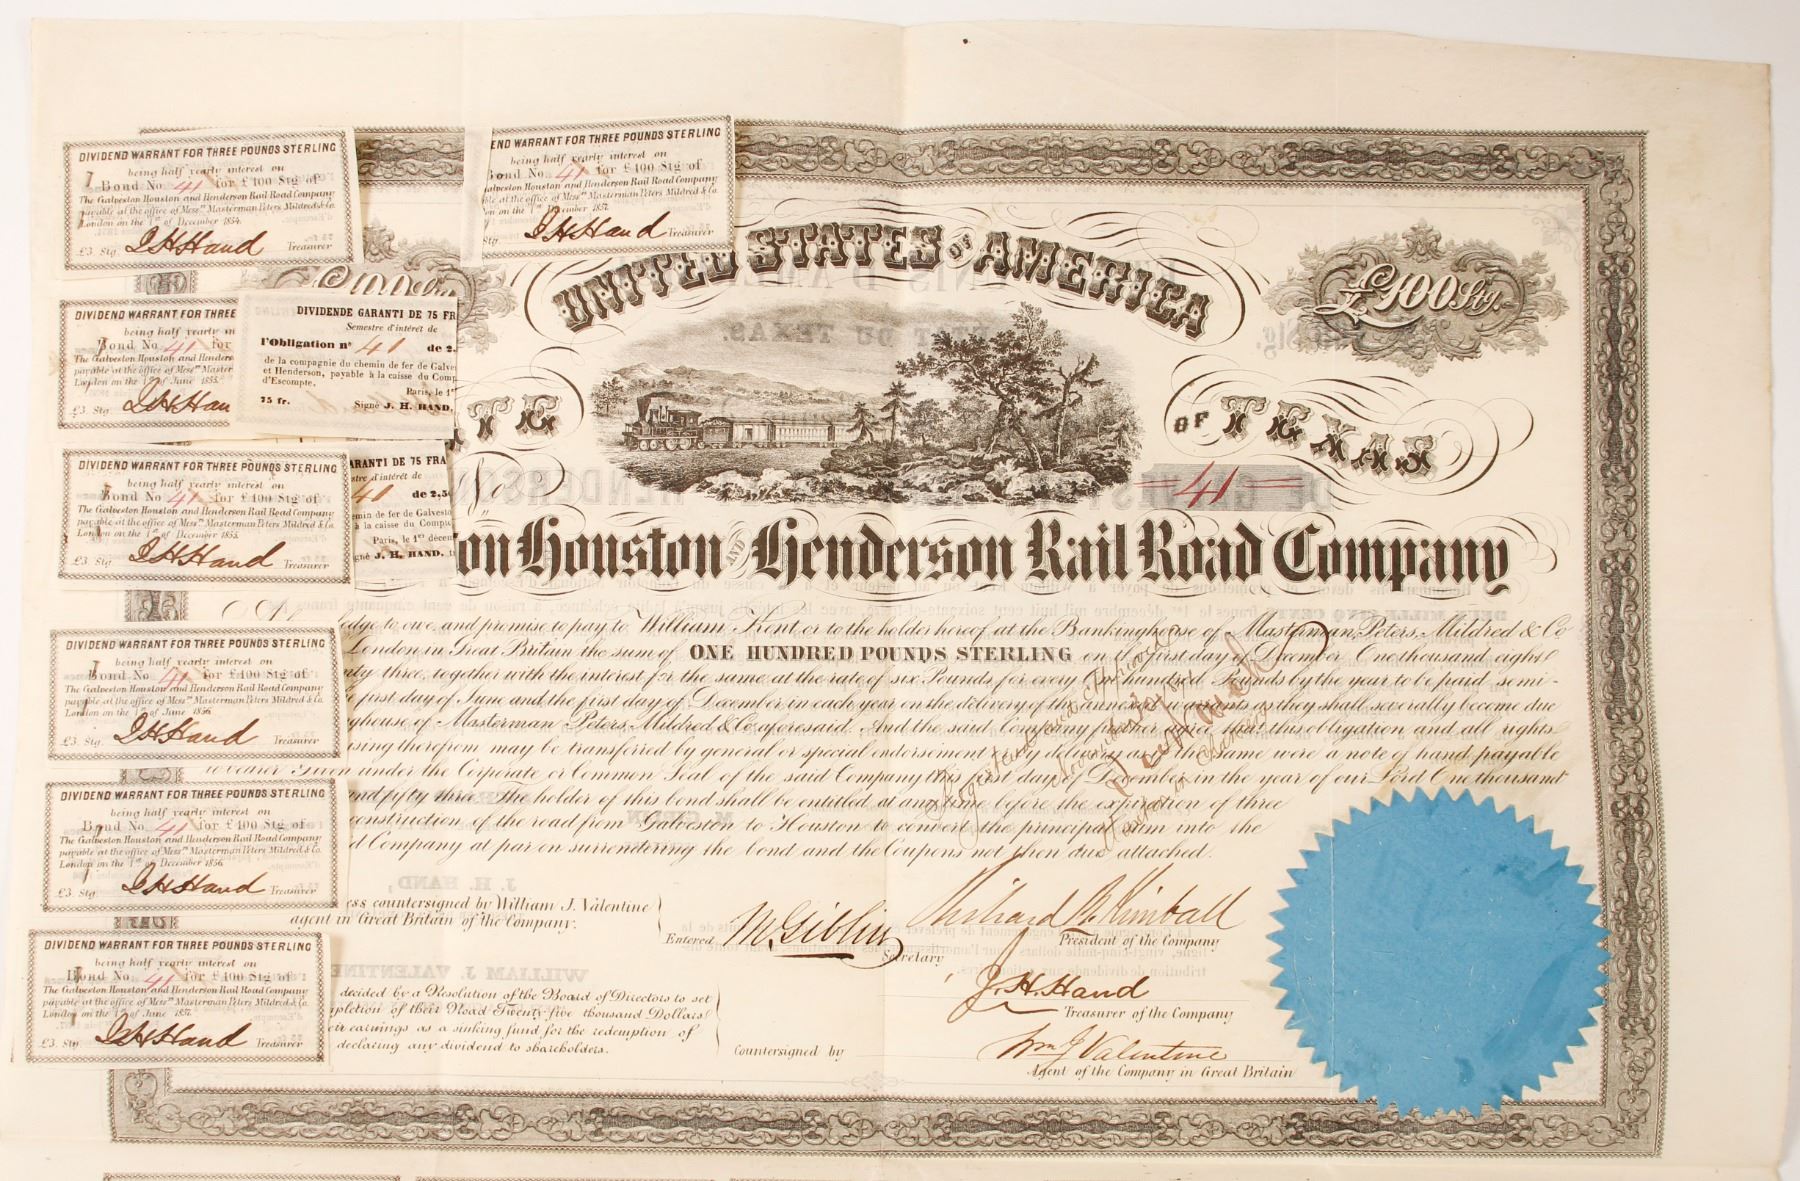 DIVIDEND WARRANT FOR THREE POUNDS STERLING
being half yearly interest on
Bond No 41 for £100 Stg of
The Galveston Houston and Henderson Rail Road Company
payable at the office of Messrs Masterman Peters Mildred & Co.
London on the 1st of December 1854.
£3 Stg. J H Hand Treasurer
END WARRANT FOR THREE POUNDS STERLING
being half yearly interest on
Bond No 41 for £100 Stg of
Galveston Houston and Henderson Rail Road Company
ble at the office of Messrs Masterman Peters Mildred & Co.
on on the 1st December 1857.
Stg. J H Hand Treasurer
DIVIDEND WARRANT FOR THREE
being half yearly in
Bond No 41 for
The Galveston Houston and Henders
payable at the office of Messrs Master
London on the 1st of June 1855.
£3 Stg J H Han
DIVIDENDE GARANTI DE 75 FR
Semestre d'intérêt de
l'Obligation no 41 de 2.
de la compagnie du chemin de fer de Galve
et Henderson, payable à la caisse du Comp
d'Escompte.
Paris, le 1er
75 fr. Signé J. H. HAND,
DIVIDEND WARRANT FOR THREE POUNDS STERLING
being half yearly interest on
Bond No 41 for £100 Stg of
The Galveston Houston and Henderson Rail Road Company
payable at the office of Messrs Masterman Peters Mildred & Co.
London on the 1st of December 1855.
£3 Stg. J H Hand Treasurer
ARANTI DE 75 FRA
stre d'intérêt de
41 de 2,50
emin de fer de Galvesto
à la caisse du Compt
Paris, le 1er décem
gné J. H. HAND, t
DIVIDEND WARRANT FOR THREE POUNDS STERLING
being half yearly interest on
Bond No 41 for £100 Stg of
The Galveston Houston and Henderson Rail Road Company
payable at the office of Messrs Masterman Peters Mildred & Co.
London on the 1st of June 1856.
£3 Stg. J H Hand Treasurer
DIVIDEND WARRANT FOR THREE POUNDS STERLING
being half yearly interest on
Bond No 41 for £100 Stg of
The Galveston Houston and Henderson Rail Road Company
payable at the office of Messrs Masterman Peters Mildred & Co.
London on the 1st of December 1856.
£3 Stg J H Hand Treasurer
DIVIDEND WARRANT FOR THREE POUNDS STERLING
being half yearly interest on
Bond No 41 for £100 Stg of
The Galveston Houston and Henderson Rail Road Company
payable at the office of Messrs Masterman Peters Mildred & Co.
London on the 1st of June 1857.
£3 Stg J H Hand Treasurer
UNITED STATES OF AMERICA
£100 Stg.
£100 Stg.
TE OF TEXAS
No 41
on Houston AND Henderson Rail Road Company
ledge to owe, and promise to pay to William Kent or to the holder hereof at the Bankinghouse of Masterman, Peters, Mildred & Co
London in Great Britain the sum of ONE HUNDRED POUNDS STERLING on the first day of December One thousand eight
nty three, together with the interest for the same at the rate of six Pounds for every One hundred Pounds by the year to be paid semi-
first day of June and the first day of December in each year on the delivery of the annexed warrants as they shall severally become due
ghouse of Masterman Peters Mildred & Co aforesaid. And the said Company further agree that this obligation and all rights
ising therefrom may be transferred by general or special endorsement or by delivery as if the same were a note of hand payable
to bearer Given under the Corporate or Common Seal of the said Company this first day of December in the year of our Lord One thousand
and fifty three. The holder of this bond shall be entitled at any time before the expiration of three
construction of the road from Galveston to Houston to convert the principal sum into the
d Company at par on surrendering the bond and the Coupons not then due attached.
ess countersigned by William J. Valentine
agent in Great Britain of the Company.
Entered McGiblin Secretary
Richard B. Kimball
President of the Company
J. H. Hand
Treasurer of the Company
decided by a Resolution of the Board of Directors to set
pletion of their Road Twenty-five thousand Dollars
eir earnings as a sinking fund for the redemption of
declaring any dividend to shareholders.
Countersigned by Wm J Valentine
Agent of the Company in Great Britain